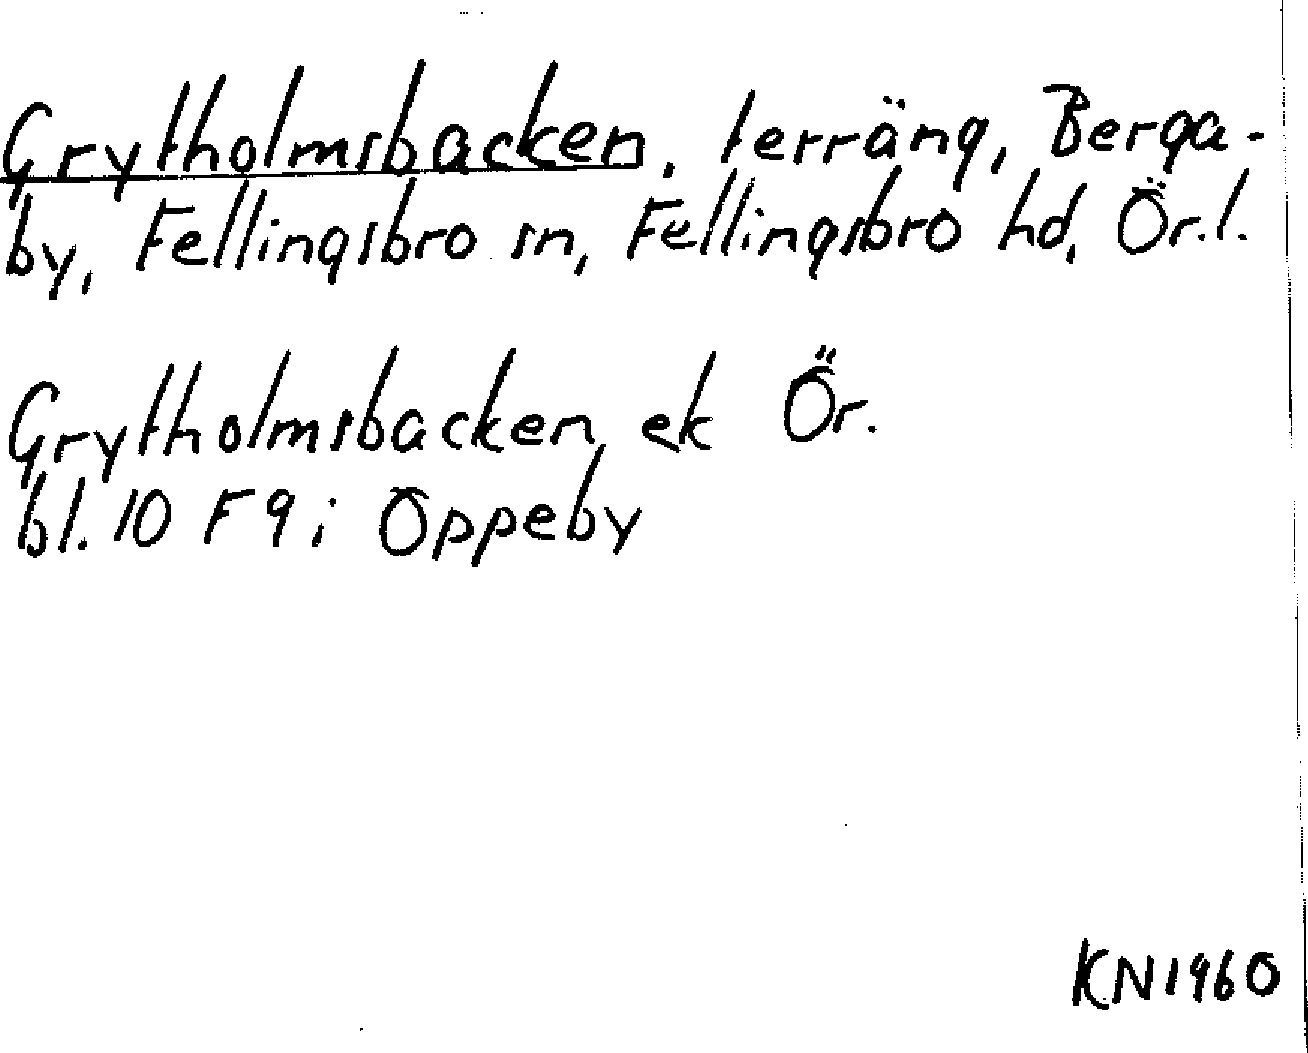 Grytholmsbacken, terräng, Berga-
by, Fellingsbro sn, Fellingsbro hd, Ör.l.
Grytholmsbacken, ek Ör.
bl. 10 F 9 i Oppeby
KN1960